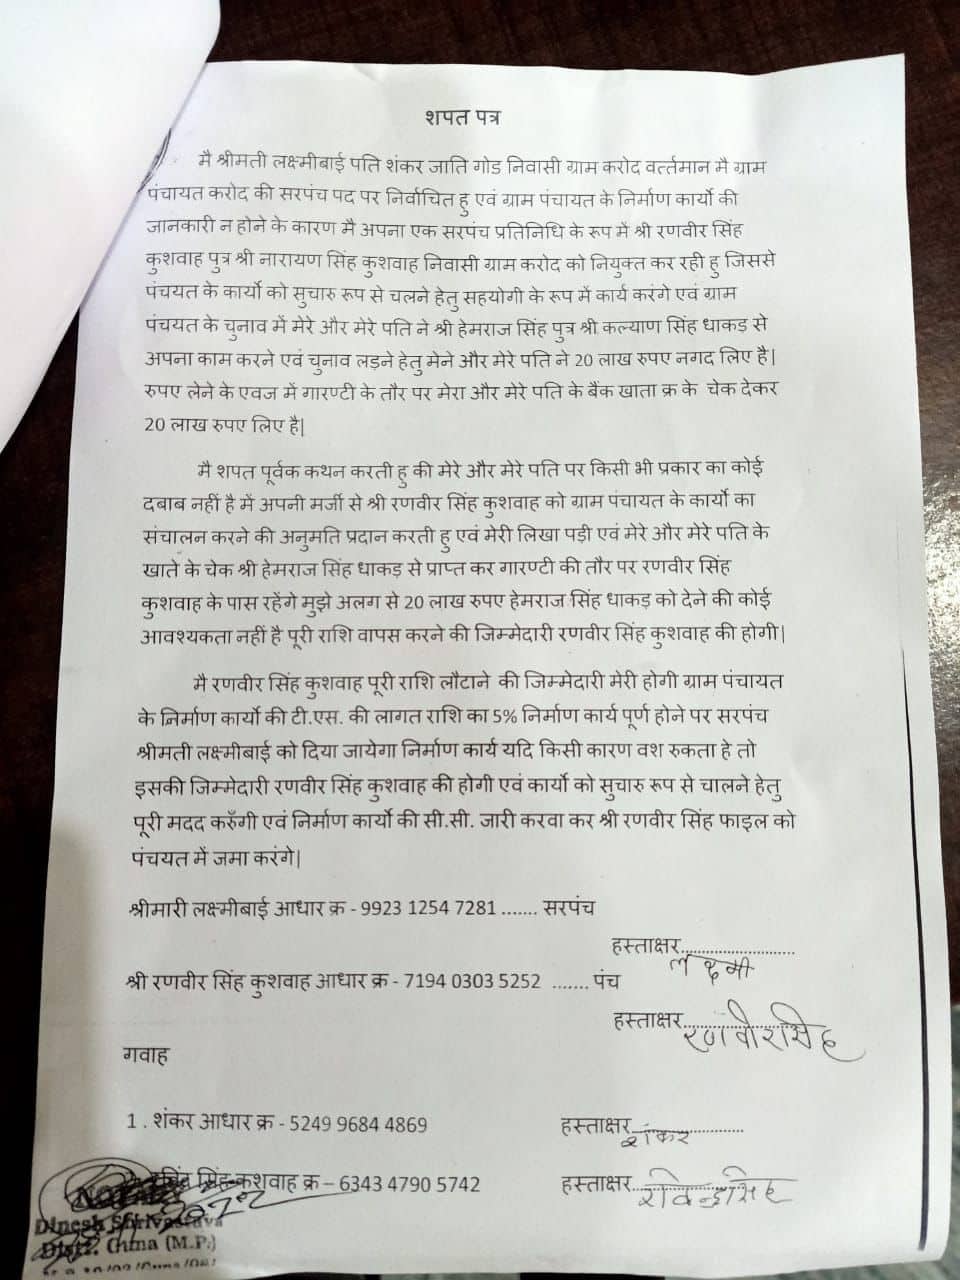 शपत पत्र
मै श्रीमती लक्ष्मीबाई पति शंकर जाति गोड निवासी ग्राम करोद वर्त्तमान मै ग्राम
पंचायत करोद की सरपंच पद पर निर्वाचित हु एवं ग्राम पंचायत के निर्माण कार्यो की
जानकारी न होने के कारण मै अपना एक सरपंच प्रतिनिधि के रूप में श्री रणवीर सिंह
कुशवाह पुत्र श्री नारायण सिंह कुशवाह निवासी ग्राम करोद को नियुक्त कर रही हु जिससे
पंचयत के कार्यो को सुचारु रूप से चलने हेतु सहयोगी के रूप में कार्य करंगे एवं ग्राम
पंचयत के चुनाव में मेरे और मेरे पति ने श्री हेमराज सिंह पुत्र श्री कल्याण सिंह धाकड से
अपना काम करने एवं चुनाव लड़ने हेतु मेने और मेरे पति ने 20 लाख रुपए नगद लिए है|
रुपए लेने के एवज में गारण्टी के तौर पर मेरा और मेरे पति के बैंक खाता क्र के चेक देकर
20 लाख रुपए लिए है|
मै शपत पूर्वक कथन करती हु की मेरे और मेरे पति पर किसी भी प्रकार का कोई
दबाब नहीं है में अपनी मर्जी से श्री रणवीर सिंह कुशवाह को ग्राम पंचायत के कार्यो का
संचालन करने की अनुमति प्रदान करती हु एवं मेरी लिखा पड़ी एवं मेरे और मेरे पति के
खाते के चेक श्री हेमराज सिंह धाकड़ से प्राप्त कर गारण्टी की तौर पर रणवीर सिंह
कुशवाह के पास रहेंगे मुझे अलग से 20 लाख रुपए हेमराज सिंह धाकड़ को देने की कोई
आवश्यकता नहीं है पूरी राशि वापस करने की जिम्मेदारी रणवीर सिंह कुशवाह की होगी|
मै रणवीर सिंह कुशवाह पूरी राशि लौटाने की जिम्मेदारी मेरी होगी ग्राम पंचायत
के निर्माण कार्यो की टी.एस. की लागत राशि का 5% निर्माण कार्य पूर्ण होने पर सरपंच
श्रीमती लक्ष्मीबाई को दिया जायेगा निर्माण कार्य यदि किसी कारण वश रुकता हे तो
इसकी जिम्मेदारी रणवीर सिंह कुशवाह की होगी एवं कार्यो को सुचारु रूप से चालने हेतु
पूरी मदद करुँगी एवं निर्माण कार्यो की सी.सी. जारी करवा कर श्री रणवीर सिंह फाइल को
पंचयत में जमा करंगे|
श्रीमारी लक्ष्मीबाई आधार क्र - 9923 1254 7281 ....... सरपंच
हस्ताक्षर..........................
लक्ष्मी
श्री रणवीर सिंह कुशवाह आधार क्र - 7194 0303 5252 ....... पंच
हस्ताक्षर..........................
रणवीरसिंह
गवाह
1 . शंकर आधार क्र - 5249 9684 4869 हस्ताक्षर..........................
शंकर
सिंह कुशवाह क्र – 6343 4790 5742 हस्ताक्षर..........................
रविन्द्रसिंह
NOTARY
Dinesh Shrivastava
Distt. Guna (M.P.)